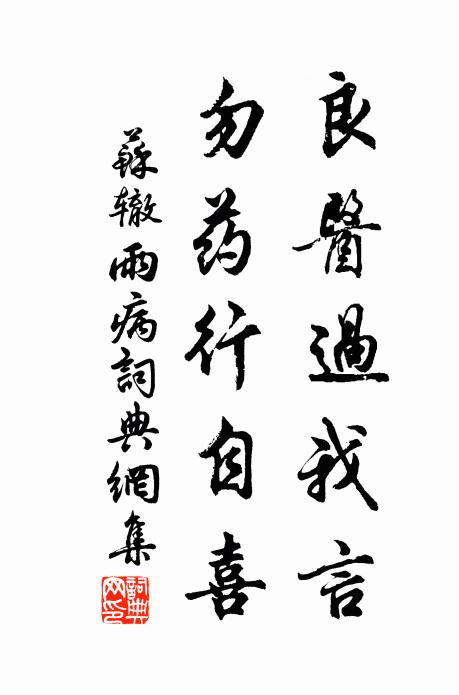 良醫過我言
勿药行自喜
蘇辙雨病詞典網集
詞典网印